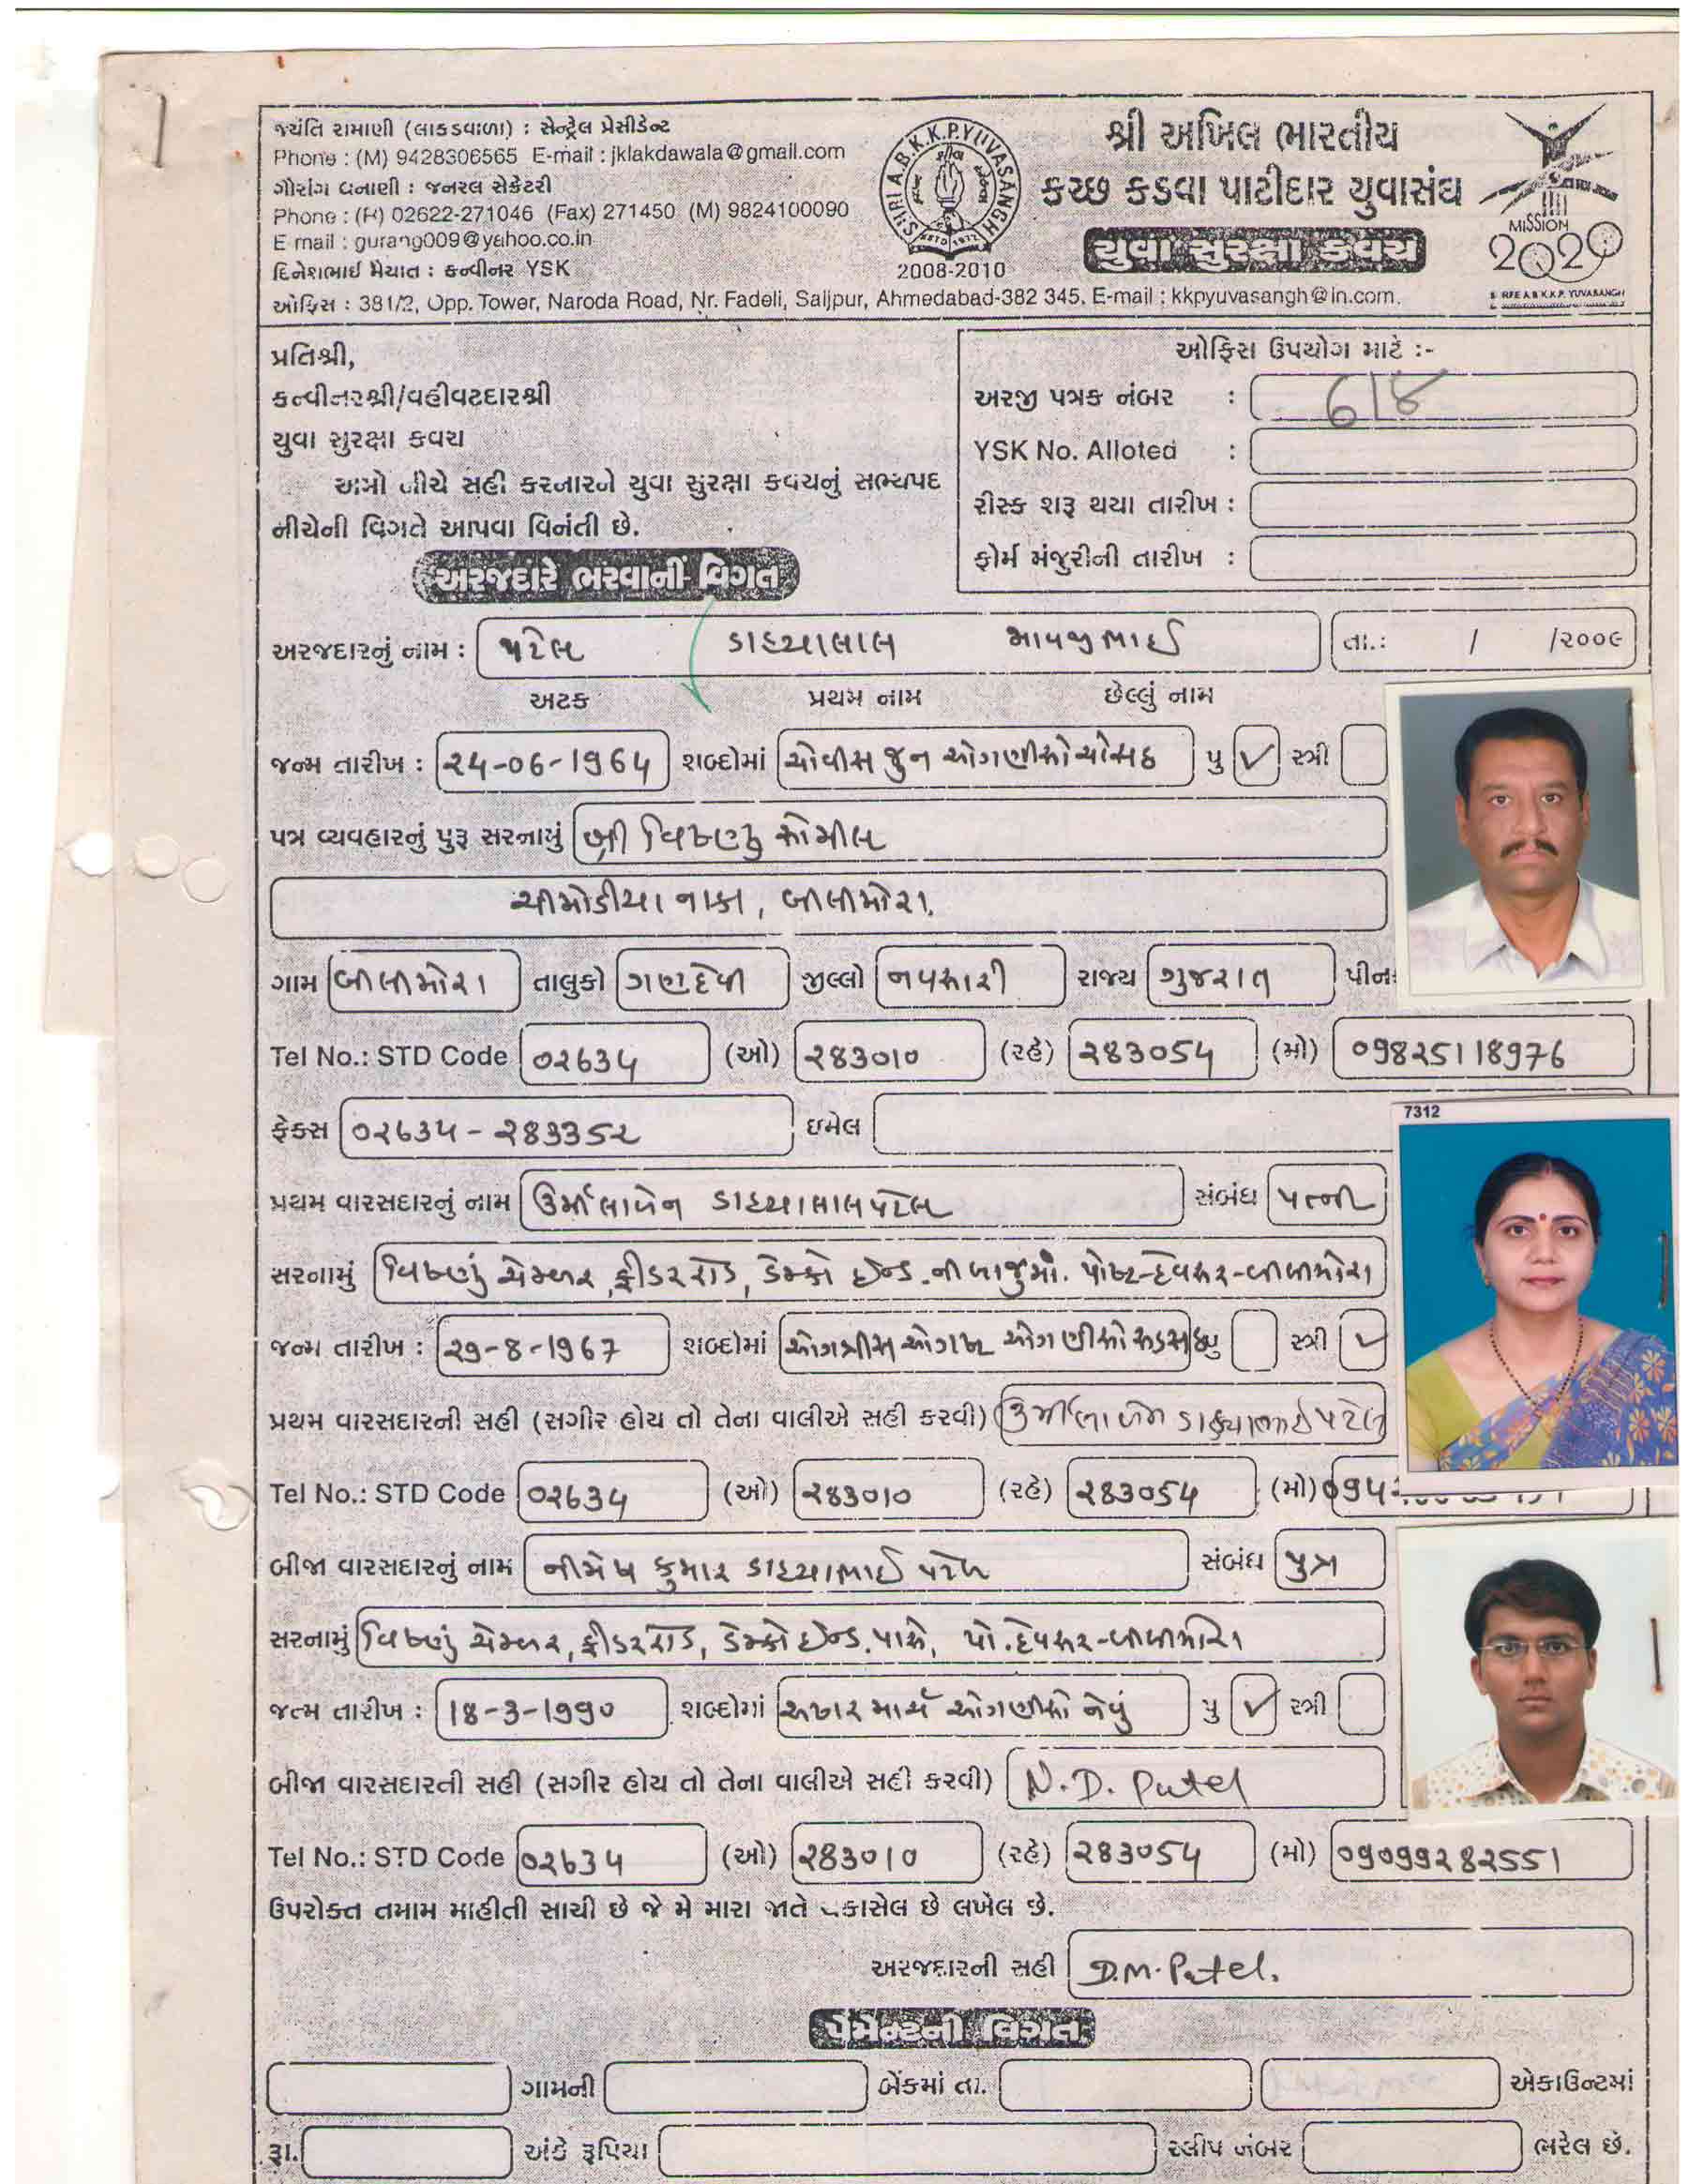 જયંતિ રામાણી (લાકડવાળા) : સેન્ટ્રેલ પ્રેસીડેન્ટ
Phone : (M) 9428306565 E-mail : jklakdawala@gmail.com
ગૌરાંગ ધનાણી : જનરલ સેક્રેટરી
Phone : (R) 02622-271046 (Fax) 271450 (M) 9824100090
E mail : gurang009@yahoo.co.in
દિનેશભાઈ મૈયાત : કન્વીનર YSK
ઓફિસ : 381/2, Opp. Tower, Naroda Road, Nr. Fadeli, Saijpur, Ahmedabad-382 345. E-mail : kkpyuvasangh@in.com.
SHRI A.B.K.K.P. YUVASANGH
ESTD 1972
2008-2010
શ્રી અખિલ ભારતીય
કચ્છ કડવા પાટીદાર યુવાસંઘ
યુવા સુરક્ષા કવચ
MISSION
2020
SHREE A.B.K.K.P. YUVASANGH
પ્રતિશ્રી,
કન્વીનરશ્રી/વહીવટદારશ્રી
યુવા સુરક્ષા કવચ
અમો નીચે સહી કરનારને યુવા સુરક્ષા કવચનું સભ્યપદ
નીચેની વિગતે આપવા વિનંતી છે.
ઓફિસ ઉપયોગ માટે :-
અરજી પત્રક નંબર : 618
YSK No. Alloted :
રીસ્ક શરૂ થયા તારીખ :
ફોર્મ મંજુરીની તારીખ :
અરજદારે ભરવાની વિગત
અરજદારનું નામ : પટેલ ડાહ્યાલાલ માવજીભાઈ તા.: / /૨૦૦૯
અટક પ્રથમ નામ છેલ્લું નામ
જન્મ તારીખ : ૨4-06-1964 શબ્દોમાં ચોવીસ જુન ઓગણીસો ચોસઠ પુ ✓ સ્ત્રી
પત્ર વ્યવહારનું પુરૂ સરનામું શ્રી વિષ્ણુ સોમીલ
ચીમોડીયા નાકા, બીલીમોરા.
ગામ બીલીમોરા તાલુકો ગણદેવી જીલ્લો નવસારી રાજ્ય ગુજરાત પીન:
Tel No.: STD Code 0૨634 (ઓ) ૨83010 (રહે) ૨83054 (મો) 098૨5118976
ફેક્સ 0૨634 - ૨8335૨ ઇમેલ
7312
પ્રથમ વારસદારનું નામ ઉર્મીલાબેન ડાહ્યાલાલ પટેલ સંબંધ પત્ની
સરનામું વિષ્ણું ચેમ્બર, ફીડર રોડ, ડેમ્કો ઈન્ડ. ની બાજુમાં. પોષ્ટ-દેવસર-બીલીમોરા
જન્મ તારીખ : ૨9-8-1967 શબ્દોમાં ઓગત્રીસ ઓગષ્ટ ઓગણીસો સડસઠ પુ સ્ત્રી ✓
પ્રથમ વારસદારની સહી (સગીર હોય તો તેના વાલીએ સહી કરવી) ઉર્મીલાબેન ડાહ્યાભાઈ પટેલ
Tel No.: STD Code 0૨634 (ઓ) ૨83010 (રહે) ૨83054 (મો)
બીજા વારસદારનું નામ નીમેષ કુમાર ડાહ્યાભાઈ પટેલ સંબંધ પુત્ર
સરનામું વિષ્ણું ચેમ્બર, ફીડર રોડ, ડેમ્કો ઈન્ડ. પાસે, પો. દેવસર-બીલીમોરા
જન્મ તારીખ : 18-3-1990 શબ્દોમાં અઢાર માર્ચ ઓગણીસો નેવું પુ ✓ સ્ત્રી
બીજા વારસદારની સહી (સગીર હોય તો તેના વાલીએ સહી કરવી) N.D. Patel
Tel No.: STD Code 0૨634 (ઓ) ૨83010 (રહે) ૨83054 (મો) 09099૨8૨551
ઉપરોક્ત તમામ માહીતી સાચી છે જે મે મારા જાતે ચકાસેલ છે લખેલ છે.
અરજદારની સહી D.M. Patel.
પેમેન્ટની વિગત
ગામની બેંકમાં તા. એકાઉન્ટમાં
રૂા. અંકે રૂપિયા સ્લીપ નંબર ભરેલ છે.